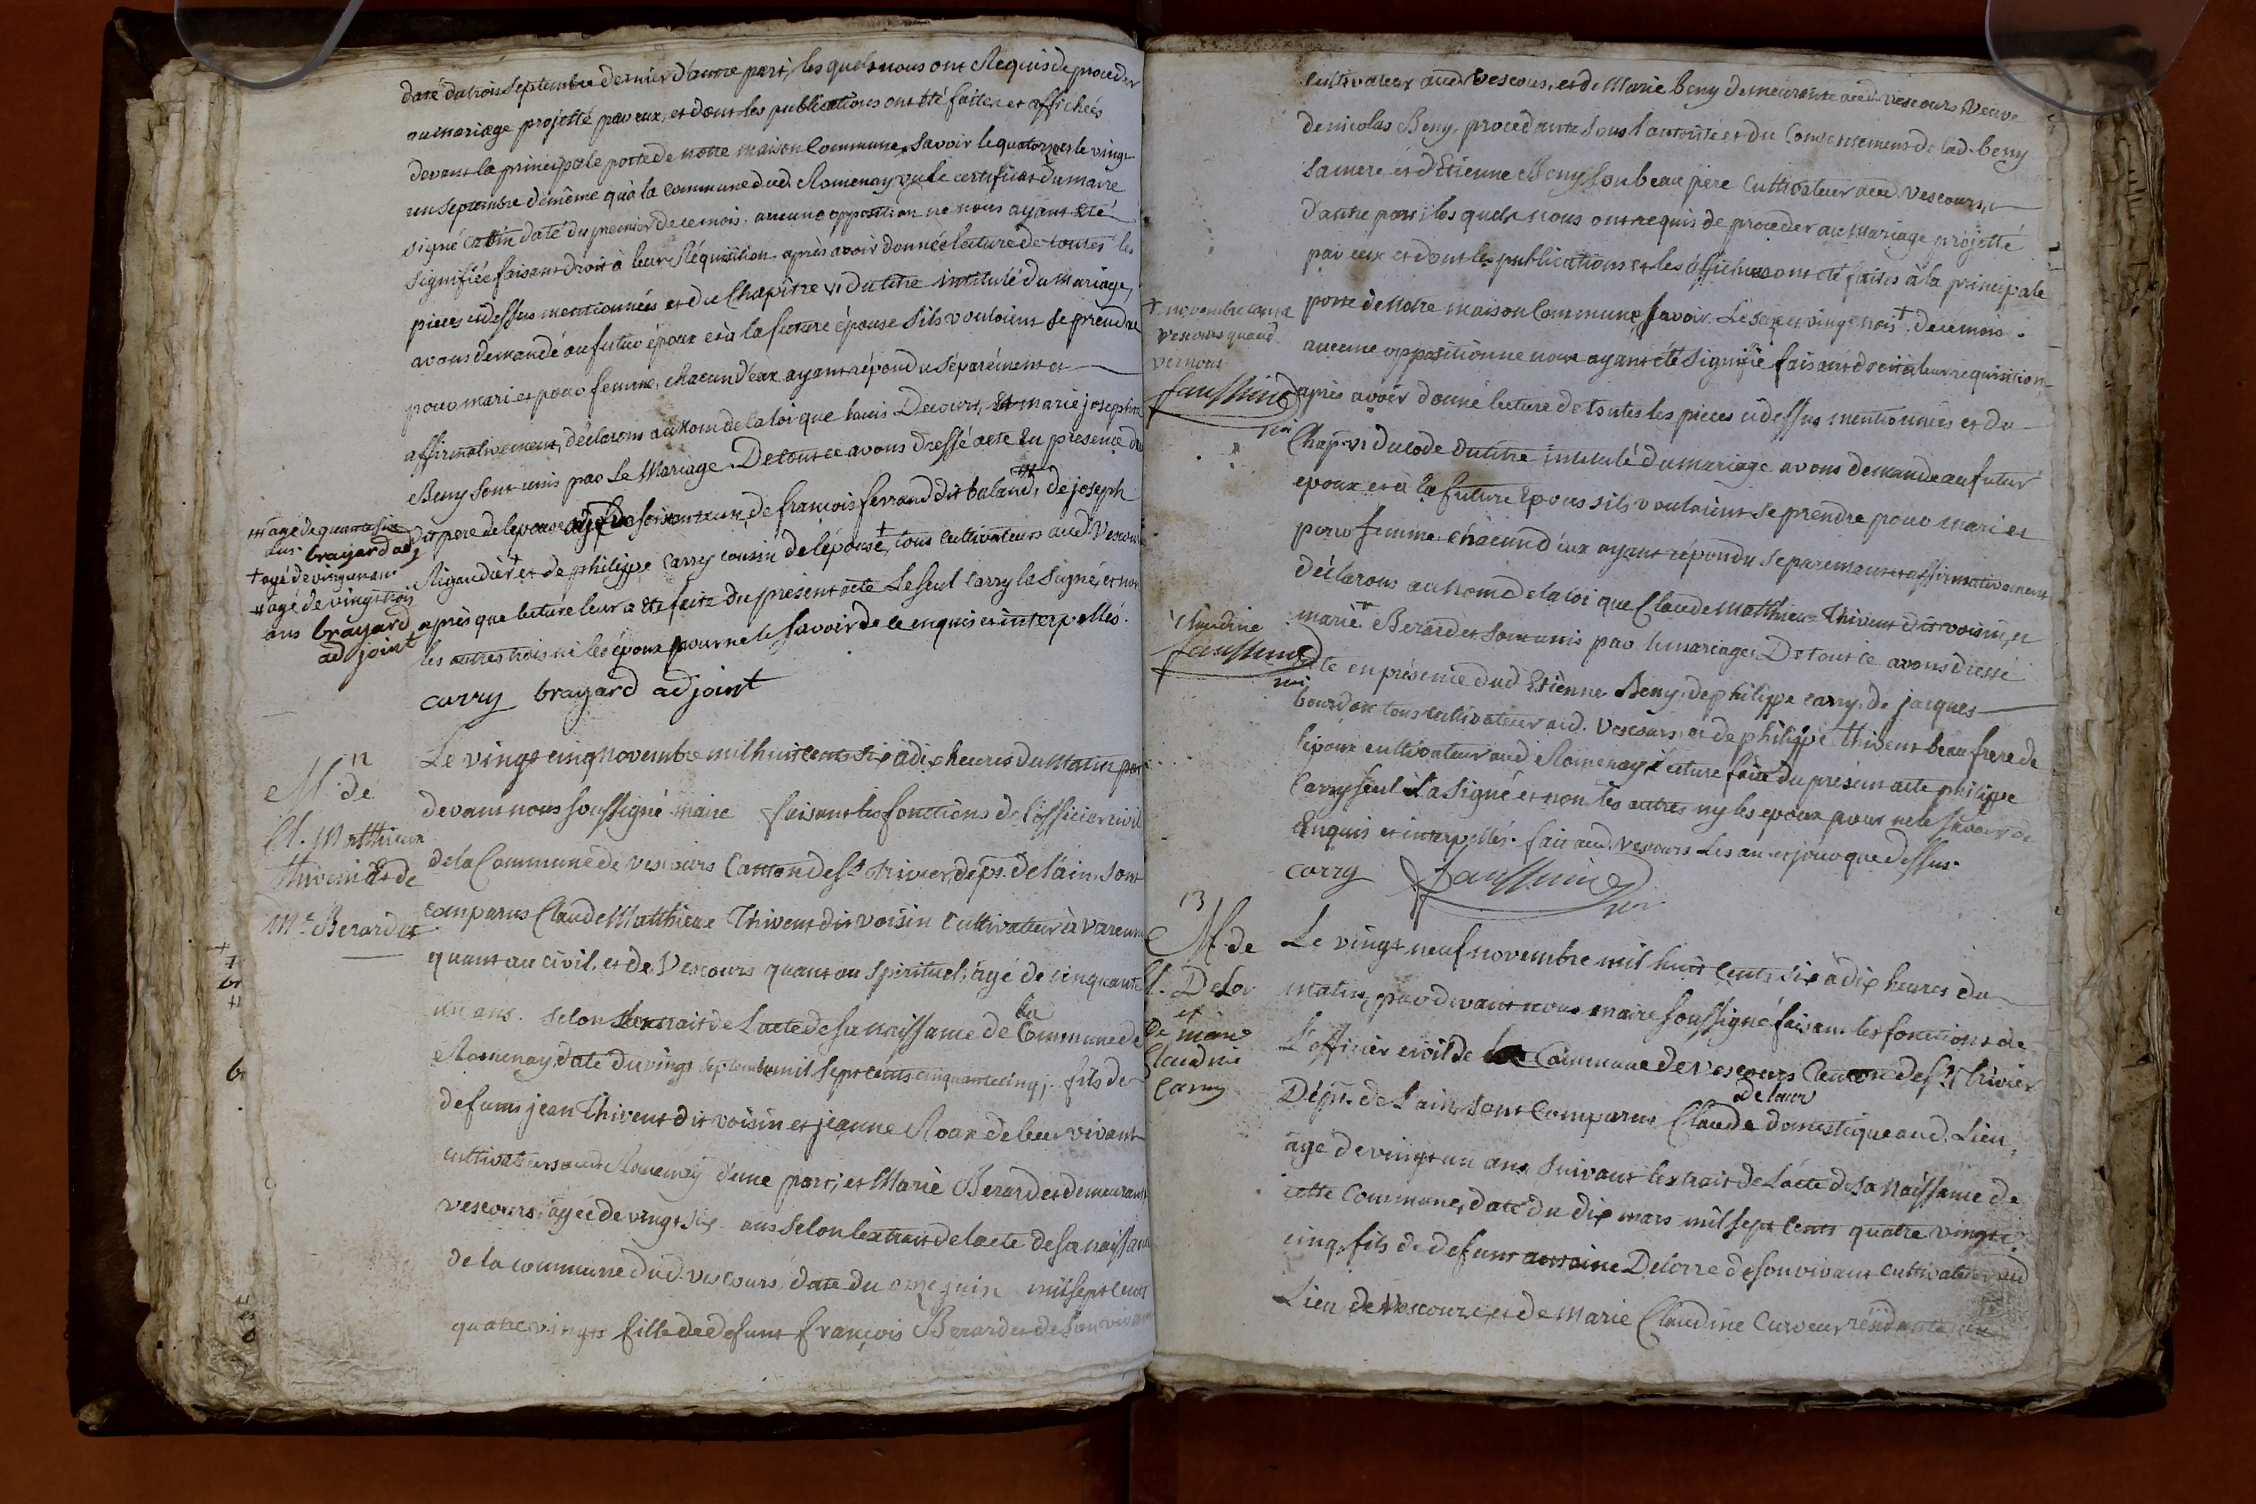 daté du trois Septembre dernier d'autre part, les quels nous ont Requis de proceder
au mariage projetté par eux, et dont les publications ont été faites et affichées
devant la principale porte de notre maison Commune, Savoir le quatorze et le vingt
un Septembre de même qu'à la Commune dud. Romenay vu le certificat du maire
signé daté du premier de ce mois. aucune opposition ne nous ayant été
signifiée faisant droit à leur Réquisition après avoir donné lecture de toutes les
pieces cidessus mentionnées et du Chapitre vi du titre intitulé du Mariage,
avons demandé au futur époux et à la future épouse S'ils vouloient se prendre
pour mari et pour femme, chacun d'eux ayant répondu Séparément et
affirmativement, déclarons au Nom de la loi que Louis Decourt, Et marie josephte
Beny Sont unis par Le Mariage. De tout ce avons dressé acte En presence de
pere de l'epoux agé de soixante un, de françois ferrand dit baland, de joseph
Rigaudier et de philippe Carry cousin de l'épouse, tous cultivateurs aud. Vescours
après que lecture leur a été faite du présent acte Le Seul Carry l'a Signé, et non
les autres trois ni les époux pour ne le Savoir de ce enquis et interpellés.
carry brayard adjoint
agé de quarante six
ans. brayard adj
+ agé de vingt un ans
# agé de vingt trois
ans brayard
adjoint
12
M. de
Cl. Matthieu
Thivent et de
Me Berardet
Le vingt cinq novembre mil huit cents six à dix heures du Matin par
devant nous Soussigné maire faisant les fonctions de l'officier civil
de la Commune de vescours Canton de St. trivier, dept. de l'ain, Sont
comparus Claude Matthieu Thivent dit voisin Cultivateur à Varennes
quant au civil, et de Vescours quant au Spirituel, agé de cinquante
un ans. Selon l'extrait de L'acte de sa naissance de la Commune de
Romenay daté du vingt septembre mil sept cents cinquante cinq, fils de
defunts jean Thivent dit voisin et jeanne Roux de leur vivant
cultivateurs aud. Romenay d'une part, et Marie Berardet demeurant
vescours, agée de vingt six ans Selon l'extrait de l'acte de sa naissance
de la commune dud. vescours, daté du onze juin mil sept cents
quatre vingts fille de defunt françois Berardet de Son vivant
cultivateur aud. Vescours, et de Marie Beny demeurante aud. vescours Veuve
de nicolas Beny, procedante Sous l'autorité et du Consentement de lad. beny
Sa mere et d'Etienne Beny Son beau pere Cultivateur aud. Vescours,
d'autre part, les quels nous ont requis de proceder au Mariage projetté
par eux et dont les publications et les affiches ont été faites à la principale
porte de Notre maison Commune Savoir. Le Seize et vingt trois + de ce mois.
aucune opposition ne nous ayant été Signifiée faisant droit à leur requisition,
après avoir donné lecture de toutes les pieces cidessus mentionnées et du
Chap. vi du code du titre intitulé du mariage avons demandé au futur
epoux et à la future Epouse s'ils vouloient se prendre pour mari et
pour femme, chacun d'eux ayant répondu Separement et affirmativement
déclarons au nom de la loi que Claude Matthieu Thivent dit voisin, et
marie Berardet Sont unis par le mariage. De tout ce avons dressé
acte en présence dud. Etienne Beny, de philippe carry, de jacques
bourdon tous cultivateurs aud. Vescours, et de philippe Thivent beau frere de
l'époux cultivateur aud. Romenay. Lecture faite du présent acte philippe
Carry seul L'a Signé et non les autres ny les epoux pour ne le Savoir de
Enquis et interpellés. fait aud. vescours Les an et jour que dessus.
carry Jaussuin
+ novembre tant a
vescours qu'aud.
Jaussuin
Claudine
Jaussuin
13
M. de
C. Delor
et
de marie
Claudine
Carry
Le vingt neuf novembre mil huit Cents Six à dix heures du
matin, par devant nous maire Soussigné faisant les fonctions de
L'officier civil de la Commune de vescours Canton de St. trivier
Dépt. de L'ain, sont Comparus Claude delorr domestique aud. Lieu,
agé de vingt un ans, Suivant l'extrait de L'acte de sa Naissance de
cette Commune, daté du dix mars mil sept Cents quatre vingt
cinq, fils de defunt antoine Delorre de son vivant cultivateur aud
Lieu de Vescours, et de Marie Claudine